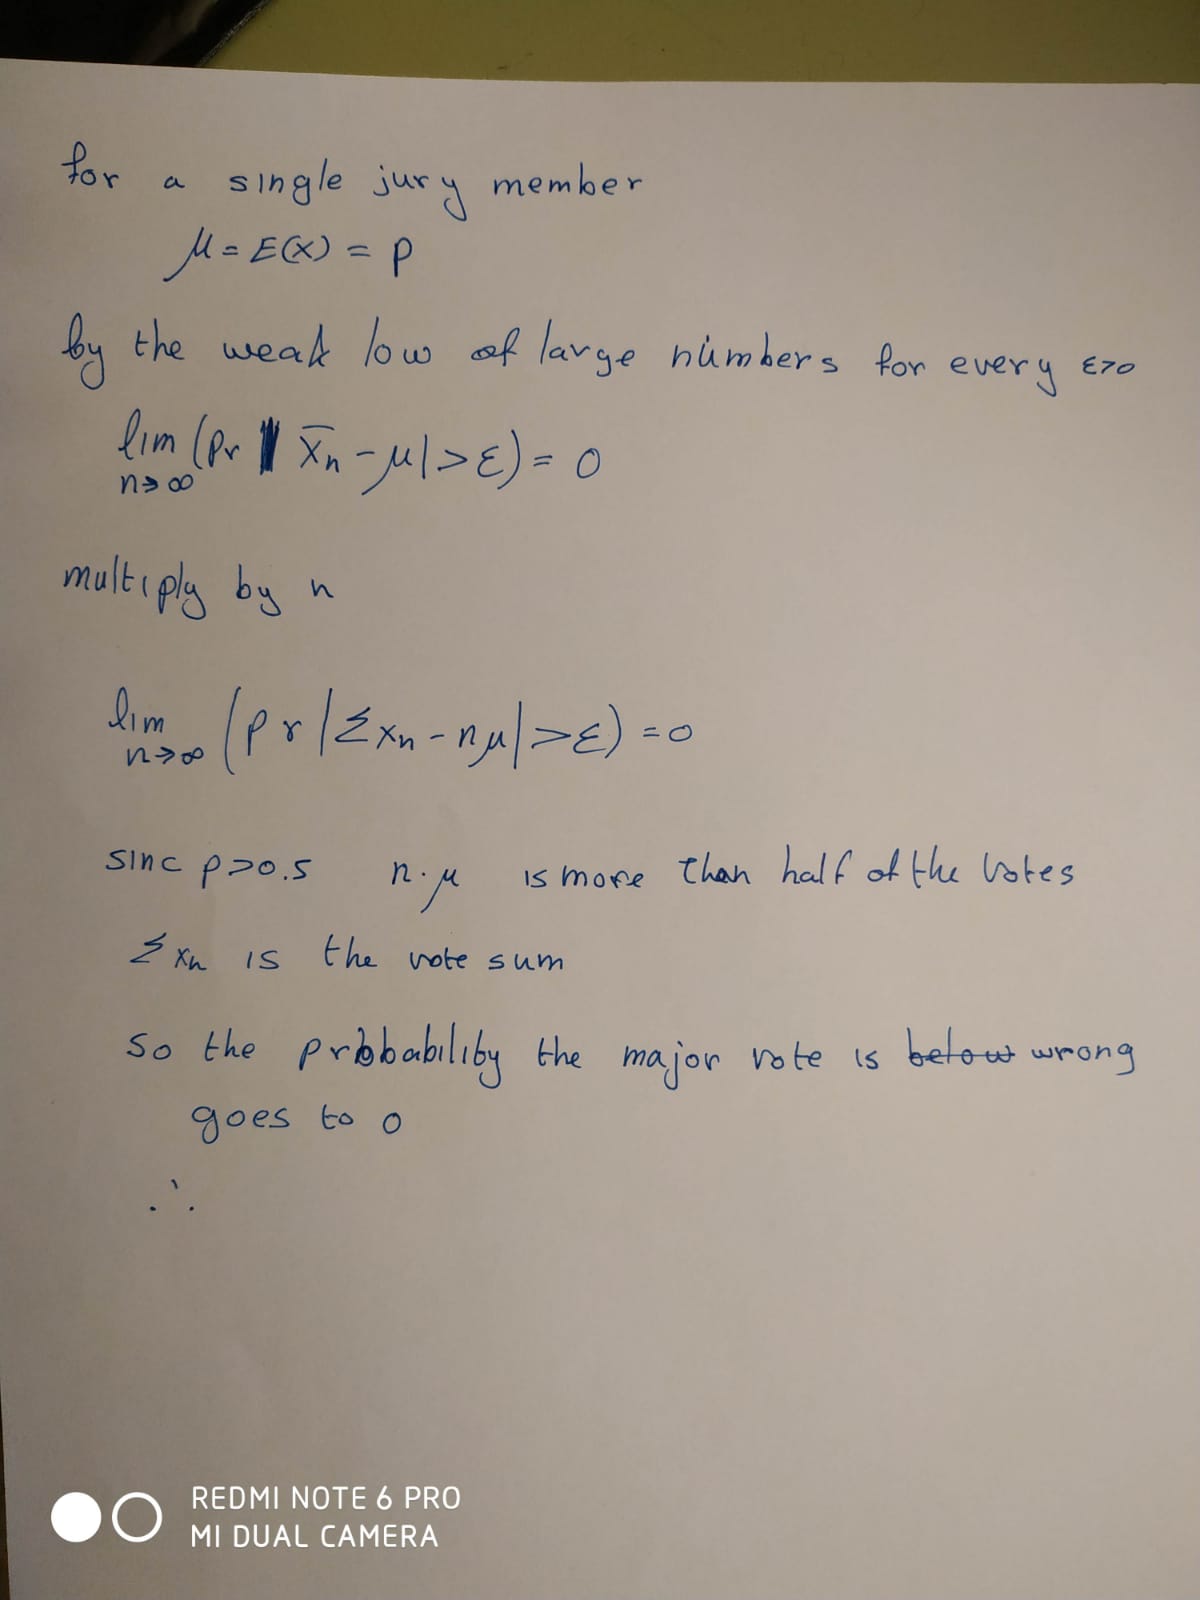 for a single jury member
μ = E(X) = p
by the weak low of large numbers for every ε>0
lim (Pr | X̄n - μ| > ε) = 0
n→∞
multiply by n
lim (pr |Σxn - nμ| > ε) = 0
n→∞
sinc p>0.5 n·μ is more than half of the votes
Σxn is the vote sum
so the probability the major vote is below wrong
goes to 0
∴
REDMI NOTE 6 PRO
MI DUAL CAMERA